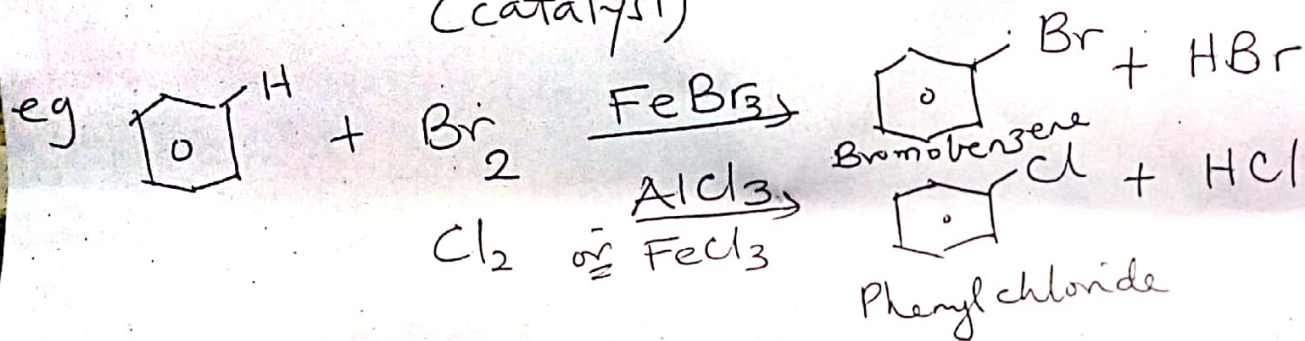 (catalyst)
eg. H + Br2 FeBr3 Br + HBr
Bromobenzene
Cl2 or AlCl3 FeCl3 Cl + HCl
Phenyl chloride